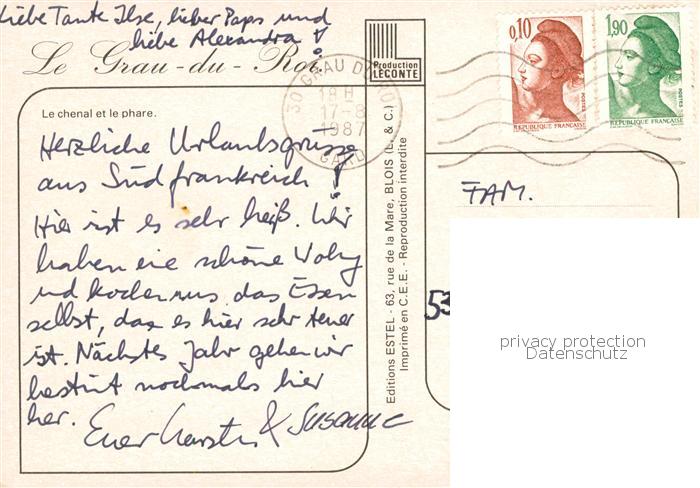 Liebe Tante Ilse, lieber Paps und
liebe Alexandra!
Le Grau-du-Roi
Le chenal et le phare.
Herzliche Urlaubsgrüsse
aus Südfrankreich!
Hier ist es sehr heiß. Wir
haben eine schöne Wohng
und kochen uns das Essen
selbst, da es hier sehr teuer
ist. Nächstes Jahr gehen wir
bestimt nochmals hier
her.
Euer Karsten & Susanne
Production
LECONTE
Editions ESTEL - 63, rue de la Mare, BLOIS (L. & C.)
Imprimé en C.E.E. - Reproduction interdite
30 GRAU DU ROI
18 H
17-8
1987
GARD
0,10
POSTES
REPUBLIQUE FRANÇAISE
1,90
POSTES
REPUBLIQUE FRANÇAISE
FAM.
53
privacy protection
Datenschutz